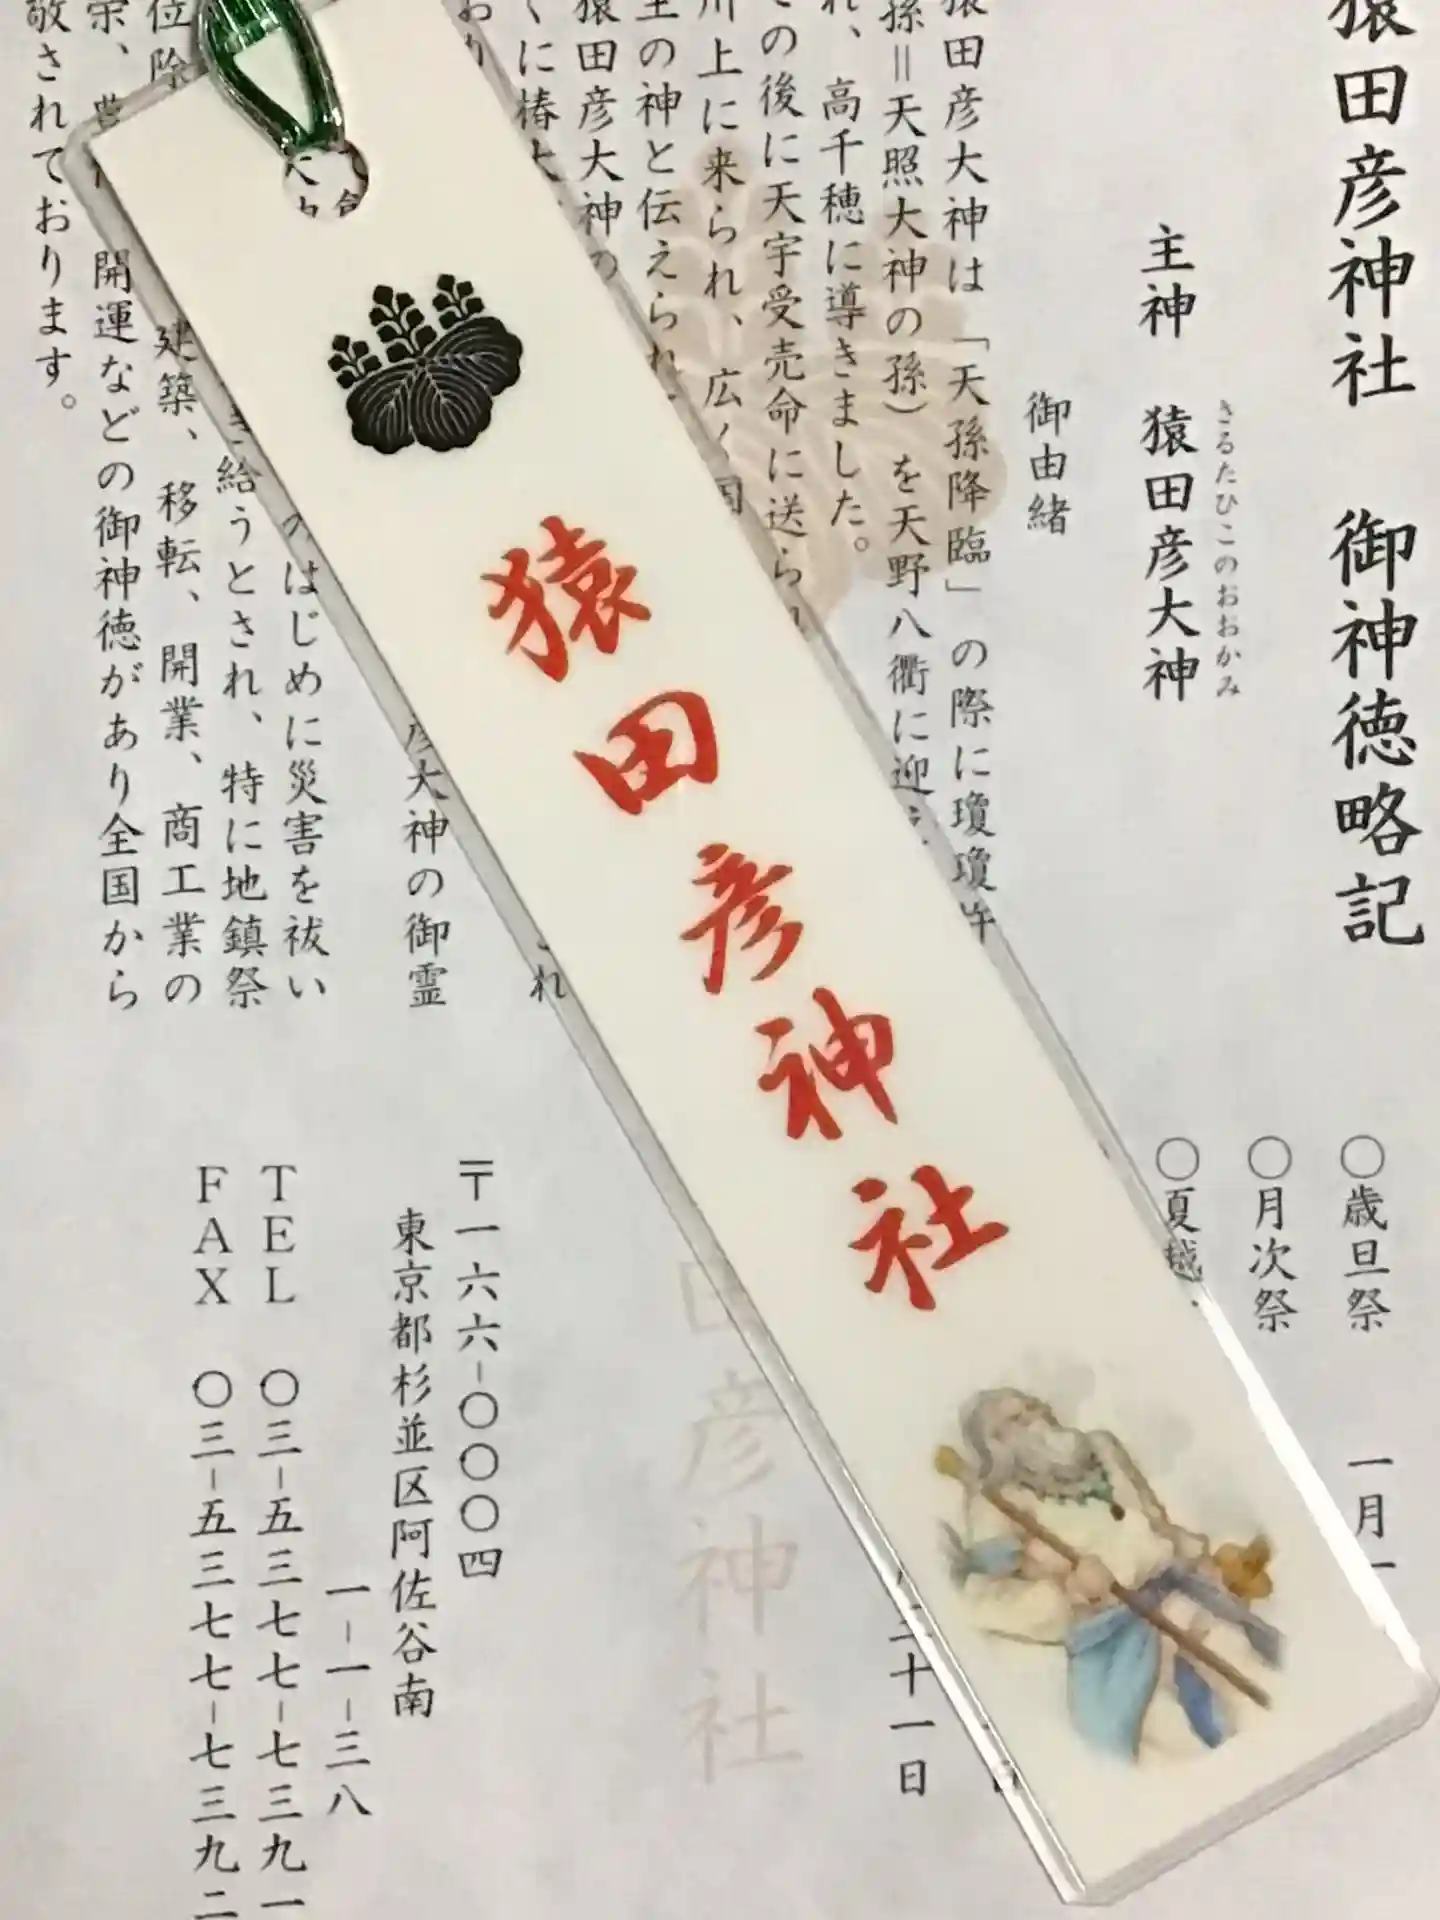 猿田彦神社 御神徳略記
主神 猿田彦大神
さるたひこのおおかみ
御由緒
猿田彦大神は「天孫降臨」の際に瓊瓊
孫＝天照大神の孫）を天野八衢に迎
れ、高千穂に導きました。
の後に天宇受売命に送ら
川上に来られ、広く国
主の神と伝えられ
猿田彦大神の
くに椿大
おり
大神の御霊
のはじめに災害を祓い
給うとされ、特に地鎮祭
建築、移転、開業、商工業の
開運などの御神徳があり全国から
敬されております。
〇歳旦祭 一月一
〇月次祭
〇夏越
三十一日
日
猿田彦神社
田彦神社
〒一六六-〇〇〇四
東京都杉並区阿佐谷南
一-一-三八
TEL 〇三-五三七七-七三九一
FAX 〇三-五三七七-七三九二